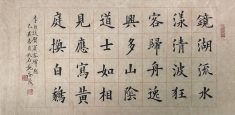 鏡湖流水
漾清波狂
客歸舟逸
興多山陰
道士如相
見應寫黃
庭換白鵝
李白送賀賓客歸越